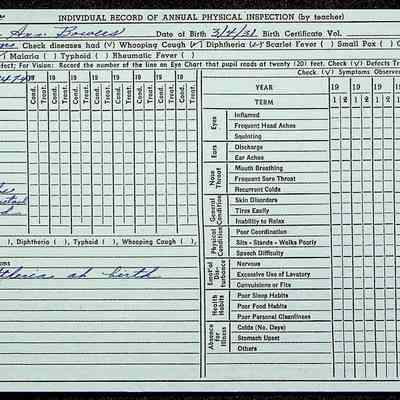 INDIVIDUAL RECORD OF ANNUAL PHYSICAL INSPECTION (by teacher)
Ann Bowles Date of Birth 3/4/31 Birth Certificate Vol.
Check diseases had (✓) Whooping Cough (✓) Diphtheria (✓) Scarlet Fever ( ) Small Pox ( )
Malaria ( ) Typhoid ( ) Rheumatic Fever ( )
fect; For Vision: Record the number of the line on Eye Chart that pupil reads at twenty (20) feet. Check (✓) Defects Tr
Check (✓) Symptoms Observe
19 19 19 19 19 19
Cond. Treat. Cond. Treat. Cond. Treat. Cond. Treat. Cond. Treat. Cond. Treat.
YEAR 19 19 19 19
TERM 1 2 1 2 1 2 1
Eyes
Inflamed
Frequent Head Aches
Squinting
Ears
Discharge
Ear Aches
Nose Throat
Mouth Breathing
Frequent Sore Throat
Recurrent Colds
General Condition
Skin Disorders
Tires Easily
Inability to Relax
Physical Condition
Poor Coordination
Sits - Stands - Walks Poorly
Speech Difficulty
Emot'nl Disturbance
Nervous
Excessive Use of Lavatory
Convulsions or Fits
Health Habits
Poor Sleep Habits
Poor Food Habits
Poor Personal Cleanliness
Absence for Illness
Colds (No. Days)
Stomach Upset
Others
), Diphtheria ( ), Typhoid ( ), Whooping Cough ( ),
ons